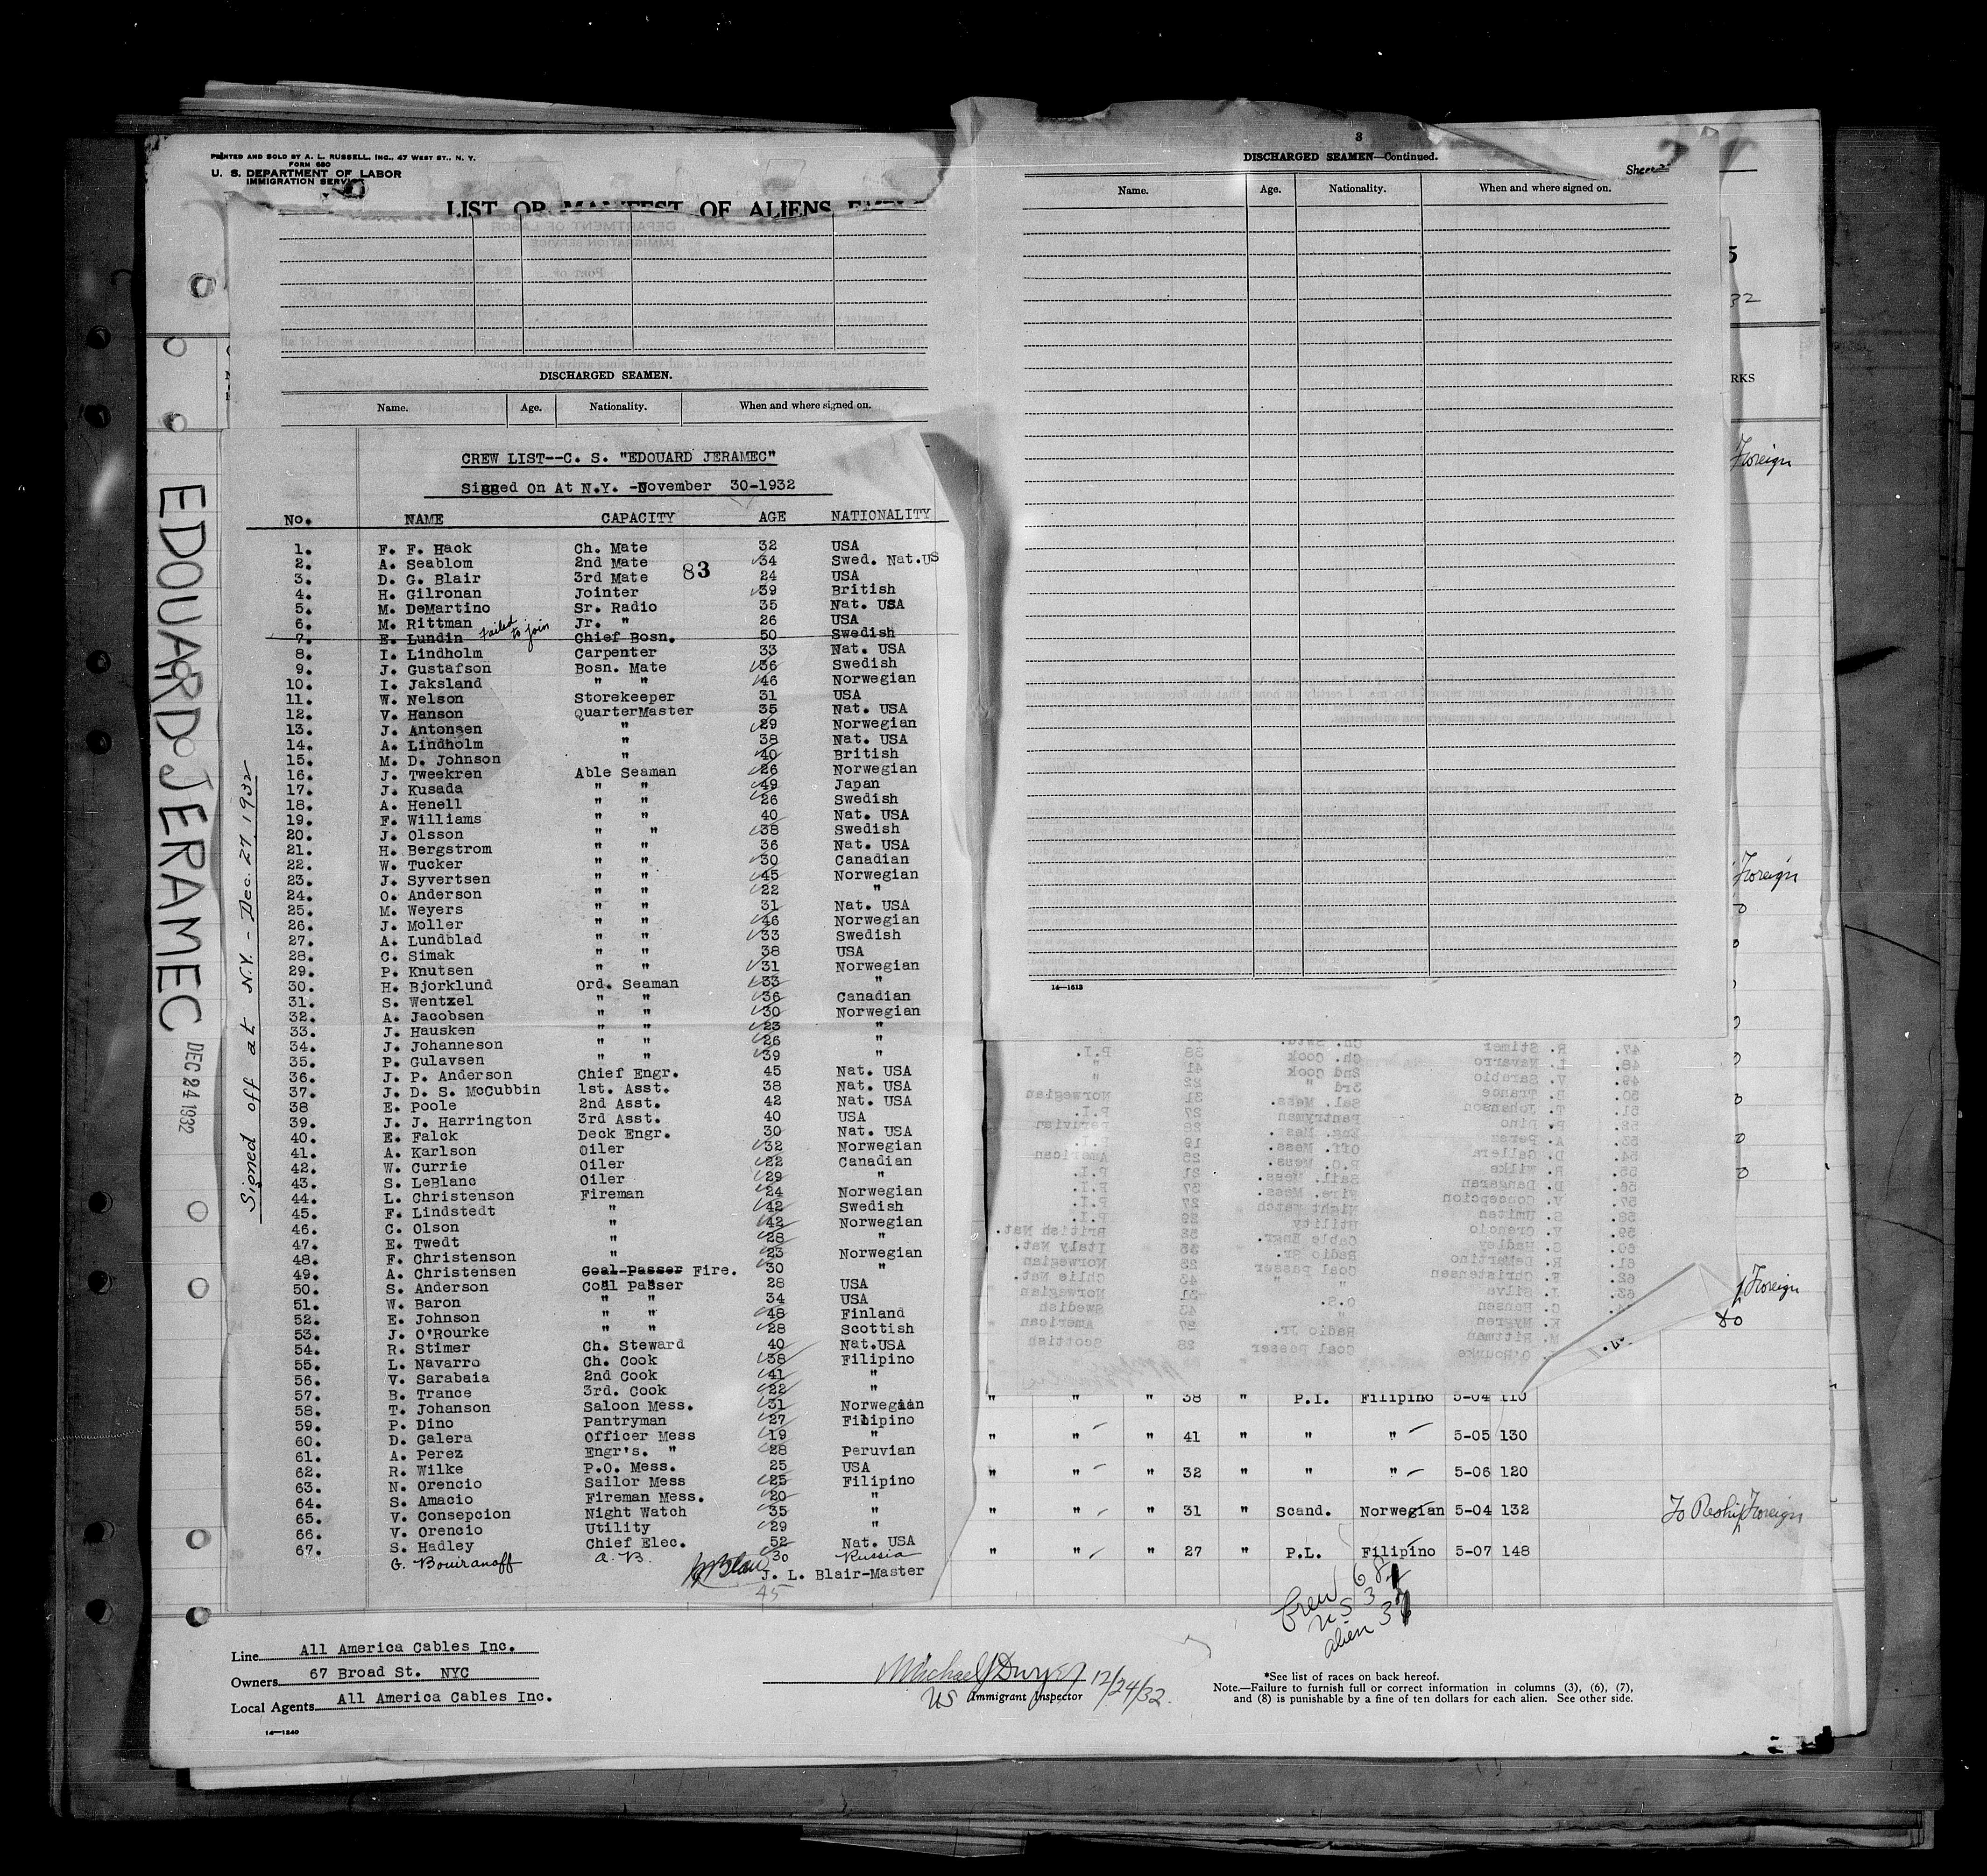 PRINTED AND SOLD BY A. L. RUSSELL, INC., 47 WEST ST., N. Y.
FORM 680
U. S. DEPARTMENT OF LABOR
IMMIGRATION SERVICE
LIST OR MANIFEST OF ALIENS
DISCHARGED SEAMEN.
Name. Age. Nationality. When and where signed on.
CREW LIST--C. S. "EDOUARD JERAMEC"
Signed On At N.Y. -November 30-1932
No. NAME CAPACITY AGE NATIONALITY
1. F. F. Hack Ch. Mate 32 USA
2. A. Seablom 2nd Mate 34 Swed. Nat.US
83
3. D. G. Blair 3rd Mate 24 USA
4. H. Gilronan Jointer 39 British
5. M. DeMartino Sr. Radio 35 Nat. USA
6. M. Rittman Jr. " 26 USA
7. E. Lundin Failed to join Chief Bosn. 50 Swedish
8. I. Lindholm Carpenter 33 Nat. USA
9. J. Gustafson Bosn. Mate 36 Swedish
10. I. Jaksland " " 46 Norwegian
11. W. Nelson Storekeeper 31 USA
12. V. Hanson QuarterMaster 35 Nat. USA
13. J. Antonsen " 29 Norwegian
14. A. Lindholm " 38 Nat. USA
15. M. D. Johnson " 40 British
16. J. Tweekren Able Seaman 26 Norwegian
17. J. Kusada " " 49 Japan
18. A. Henell " " 26 Swedish
19. F. Williams " " 40 Nat. USA
20. J. Olsson " " 38 Swedish
21. H. Bergstrom " " 36 Nat. USA
22. W. Tucker " " 30 Canadian
23. J. Syvertsen " " 45 Norwegian
24. O. Anderson " " 22 "
25. M. Weyers " " 31 Nat. USA
26. J. Moller " " 46 Norwegian
27. A. Lundblad " " 33 Swedish
28. C. Simak " " 38 USA
29. P. Knutsen " " 31 Norwegian
30. H. Bjorklund Ord. Seaman 33 "
31. S. Wentzel " " 36 Canadian
32. A. Jacobsen " " 30 Norwegian
33. J. Hausken " " 23 "
34. J. Johanneson " " 26 "
35. P. Gulavsen " " 39 "
36. J. P. Anderson Chief Engr. 45 Nat. USA
37. J. D. S. McCubbin 1st. Asst. 38 Nat. USA
38 E. Poole 2nd Asst. 42 Nat. USA
39. J. J. Harrington 3rd Asst. 40 USA
40. E. Falck Deck Engr. 30 Nat. USA
41. A. Karlson Oiler 32 Norwegian
42. W. Currie Oiler 22 Canadian
43. S. LeBlanc Oiler 29 "
44. L. Christenson Fireman 24 Norwegian
45. F. Lindstedt " 42 Swedish
46. C. Olson " 42 Norwegian
47. E. Twedt " 28 "
48. F. Christenson " 23 Norwegian
49. A. Christensen Coal Passer Fire. 30 "
50. S. Anderson Coal Passer 28 USA
51. W. Baron " " 34 USA
52. E. Johnson " " 48 Finland
53. J. O'Rourke " " 28 Scottish
54. R. Stimer Ch. Steward 40 Nat.USA
55. L. Navarro Ch. Cook 38 Filipino
56. V. Sarabaia 2nd Cook 41 "
57. B. Trance 3rd. Cook 22 "
58. T. Johanson Saloon Mess. 31 Norwegian
59. P. Dino Pantryman 27 Filipino
60. D. Galera Officer Mess 19 "
61. A. Perez Engr's. " 28 Peruvian
62. R. Wilke P.O. Mess. 25 USA
63. N. Orencio Sailor Mess 25 Filipino
64. S. Amacio Fireman Mess. 20 "
65. V. Consepcion Night Watch 35 "
66. V. Orencio Utility 29 "
67. S. Hadley Chief Elec. 52 Nat. USA
G. Bouiranoff A.B. 30 Russia
J. L. Blair-Master
45
EDOUARD JERAMEC
DEC 24 1932
Signed off at N.Y. - Dec. 27, 1932
3
DISCHARGED SEAMEN—Continued.
Name. Age. Nationality. When and where signed on.
14—1613
5
32
RKS
Foreign
Foreign
Foreign
47. R. Stimer Ch. Stwd.
48. L. Navarro Ch. Cook 38 P.I.
49. V. Sarabio 2nd Cook 41 "
50. B. Trance 3rd " 22 "
51. T. Johanson Sal. Mess. 31 Norwegian
52. P. Dino Pantryman 27 P.I.
53. A. Perez Eng. Mess. 28 Peruvian
54. D. Gallera Off. Mess. 19 P.I.
55. R. Wilke P.O. Mess. 25 American
56. D. Dangaran Sail. Mess. 21 P.I.
57. V. Concepcion Fire. Mess. 37 P.I.
58. S. Umiten Night Watch 27 P.I.
59. V. Orencio Utility 29 P.I.
60. S. Hadley Cable Engr. 52 British Nat.
61. R. DeMartino Radio Sr. 35 Italy Nat.
62. F. Christensen Coal Passer 23 Norwegian
63. J. Silva " " 43 Chile Nat.
C. Hansen O.S. 31 Norwegian
K. Nygren " 43 Swedish
M. Rittman Radio Jr. 27 American
O'Rourke Coal Passer 28 Scottish
" " 38 " P.I. Filipino 5-04 110
" " " 41 " " " 5-05 130
" " " 32 " " " 5-06 120
" " " 31 " Scand. Norwegian 5-04 132 To Reship Foreign
" " " 27 " P.L. Filipino 5-07 148
Crew 68
US 3
alien 3
Line All America Cables Inc.
Owners 67 Broad St. NYC
Local Agents All America Cables Inc.
14—1240
Michael J Dwyer 12/24/32.
US Immigrant Inspector
*See list of races on back hereof.
Note.—Failure to furnish full or correct information in columns (3), (6), (7),
and (8) is punishable by a fine of ten dollars for each alien. See other side.